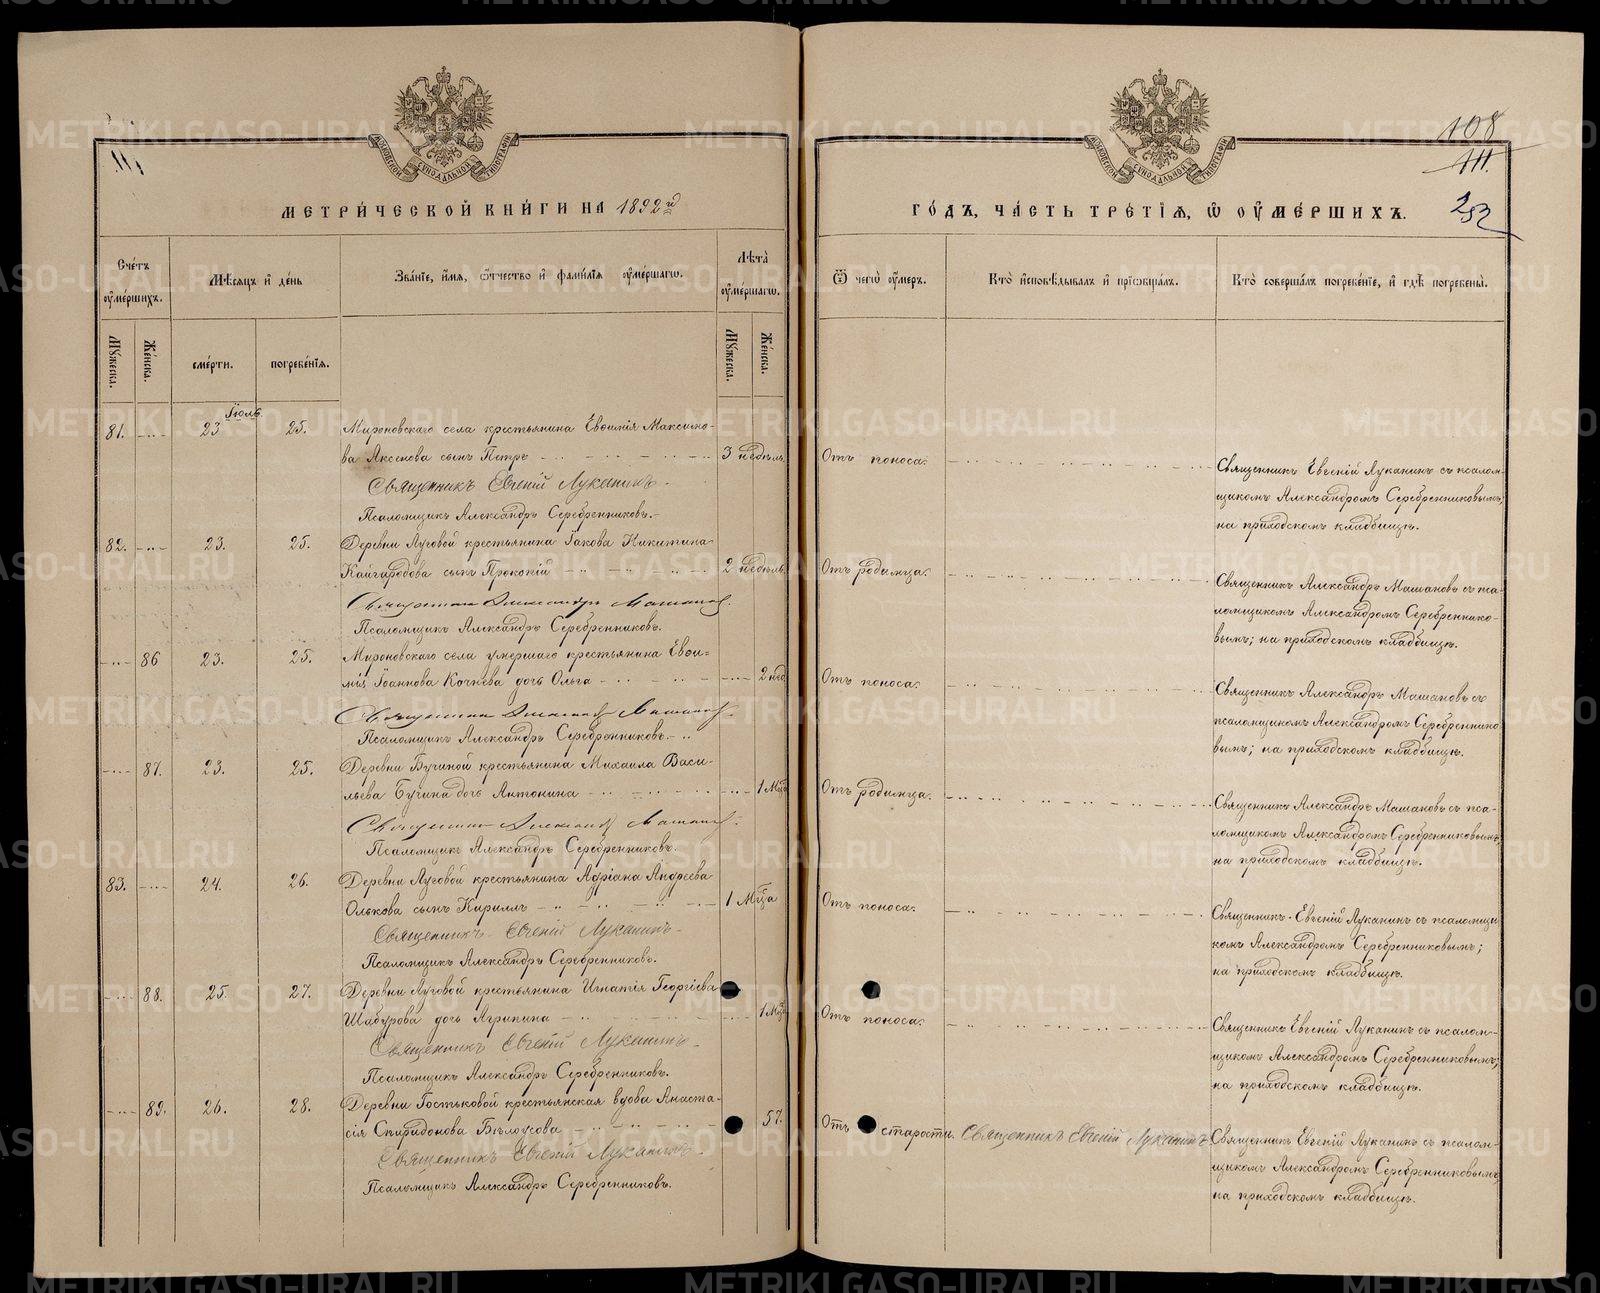 111
МЕТРИЧЕСКОЙ КНИГИ НА 1892 й
Счетъ умершихъ.
Мѣсяцъ и день
Званіе, имя, отчество и фамилія умершаго.
Лѣта умершаго.
Мужеска.
Женска.
смерти.
погребенія.
Мужеска.
Женска.
Іюль.
81. 23 25. Мироновскаго села крестьянина Евѳимія Максимо-
ва Аксенова сынъ Петръ 3 недѣль
Священникъ Евгеній Луканинъ.
Псаломщикъ Александръ Серебренниковъ.
82. 23. 25. Деревни Луговой крестьянина Іакова Никитина
Кайгородова сынъ Прокопій 2 недѣль
Священникъ Александръ Машановъ.
Псаломщикъ Александръ Серебренниковъ.
86 23. 25. Мироновскаго села умершаго крестьянина Евѳи-
мія Іоаннова Кочнева дочь Ольга 2 нед
Священникъ Александръ Машановъ.
Псаломщикъ Александръ Серебренниковъ.
87. 23. 25. Деревни Бучиной крестьянина Михаила Васи-
льева Бучина дочь Антонина 1 Мца
Священникъ Александръ Машановъ.
Псаломщикъ Александръ Серебренниковъ.
83. 24. 26. Деревни Луговой крестьянина Адріана Андреева
Олькова сынъ Кириллъ 1 Мца
Священникъ Евгеній Луканинъ
Псаломщикъ Александръ Серебренниковъ.
88. 25. 27. Деревни Луговой крестьянина Игнатія Георгіева
Шабурова дочь Агрипина 1 Мца
Священникъ Евгеній Луканинъ
Псаломщикъ Александръ Серебренниковъ.
89. 26. 28. Деревни Гостьковой крестьянская вдова Анаста-
сія Спиридонова Бѣлоусова 57.
Священникъ Евгеній Луканинъ.
Псаломщикъ Александръ Серебренниковъ.
108
111.
253
ГОДЪ, ЧАСТЬ ТРЕТІЯ, Ѿ ОУМЕРШИХЪ.
Ѿ чегѡ умеръ.
Кто исповѣдывалъ и пріобщалъ.
Кто совершалъ погребеніе, и гдѣ погребены.
Отъ поноса.
Священникъ Евгеній Луканинъ съ псалом-
щикомъ Александромъ Серебренниковымъ;
на приходскомъ кладбищѣ.
Отъ родимца.
Священникъ Александръ Машановъ съ пса-
ломщикомъ Александромъ Серебреннико-
вымъ; на приходскомъ кладбищѣ.
Отъ поноса.
Священникъ Александръ Машановъ съ
псаломщикомъ Александромъ Серебреннико-
вымъ; на приходскомъ кладбищѣ.
Отъ родимца.
Священникъ Александръ Машановъ съ пса-
ломщикомъ Александромъ Серебренниковымъ;
на приходскомъ кладбищѣ.
Отъ поноса.
Священникъ Евгеній Луканинъ съ псаломщи
комъ Александромъ Серебренниковымъ;
на приходскомъ кладбищѣ.
Отъ поноса.
Священникъ Евгеній Луканинъ съ псалом-
щикомъ Александромъ Серебренниковымъ;
на приходскомъ кладбищѣ.
Отъ старости. Священникъ Евгеній Луканинъ Священникъ Евгеній Луканинъ съ псалом-
щикомъ Александромъ Серебренниковымъ;
на приходскомъ кладбищѣ.
METRIKI.GASO-URAL.RU